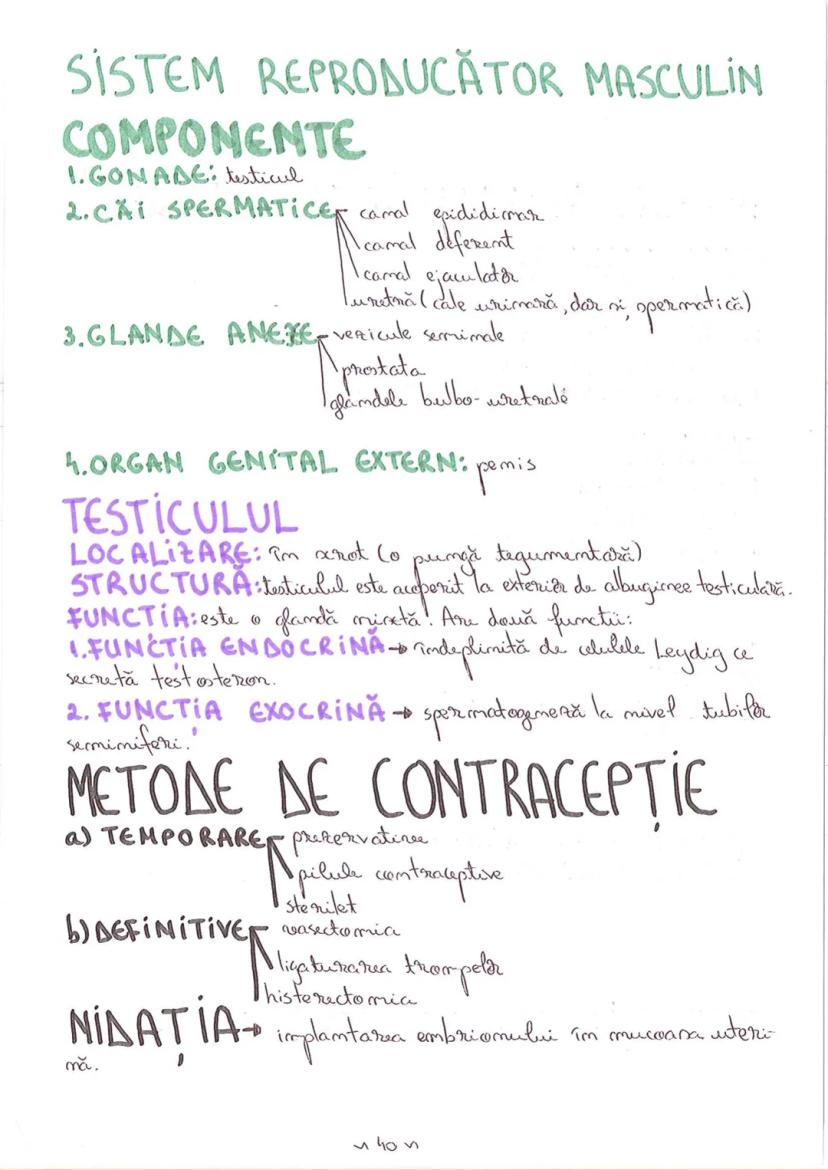 SISTEM REPRODUCĂTOR MASCULIN
COMPONENTE
1. GONADE: testicul
2. CĂI SPERMATICE canal epididimar
canal deferent
canal ejaculator
uretră (cale urinară, dar și spermatică)
3. GLANDE ANEXE vezicule seminale
prostata
glandele bulbo-uretrale
4. ORGAN GENITAL EXTERN: penis
TESTICULUL
LOCALIZARE: în scrot (o pungă tegumentară)
STRUCTURĂ: testiculul este acoperit la exterior de albuginee testiculară.
FUNCȚIA: este o glandă mixtă. Are două funcții:
1. FUNCȚIA ENDOCRINĂ → îndeplinită de celulele Leydig ce
secretă testosteron.
2. FUNCȚIA EXOCRINĂ → spermatogeneză la nivel tubilor
seminiferi.
METODE DE CONTRACEPȚIE
a) TEMPORARE prezervative
pilule contraceptive
sterilet
b) DEFINITIVE vasectomia
ligaturarea trompelor
histerectomia
NIDAȚIA → implantarea embrionului în mucoasa uteri-
nă.
~ 40 ~